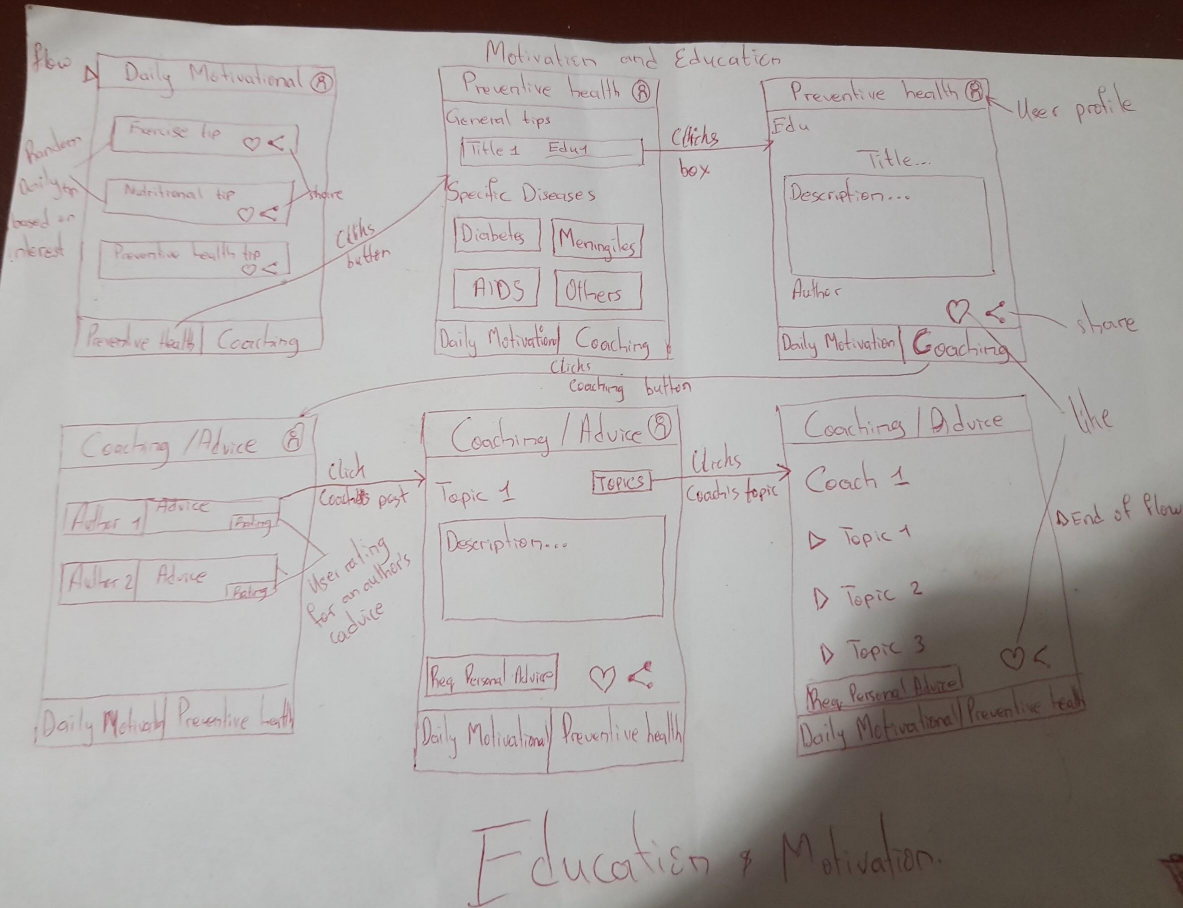 Motivation and Education
flow
Daily Motivational
Exercise tip
Nutritional tip
Preventive health tip
Random
Daily tip
based on
interest
share
Preventive Health
Coaching
Clicks
button
Preventive health
General tips
Title 1 Edu1
Specific Diseases
Diabetes
Meningites
AIDS
Others
Daily Motivation
Coaching
Clicks
box
Preventive health
User profile
Edu
Title...
Description...
Author
share
Daily Motivation
Coaching
like
Clicks
Coaching button
Coaching / Advice
Author 1
Advice
Rating
Author 2
Advice
Rating
User rating
for an author's
advice
Daily Motivatn
Preventive health
Click
Coach's post
Coaching / Advice
Topic 1
TOPICS
Description...
Req Personal Advice
Daily Motivational
Preventive health
Clicks
Coach's topic
Coaching / Advice
Coach 1
Topic 1
Topic 2
Topic 3
Req Personal Advice
Daily Motivational
Preventive health
End of flow
Education & Motivation.